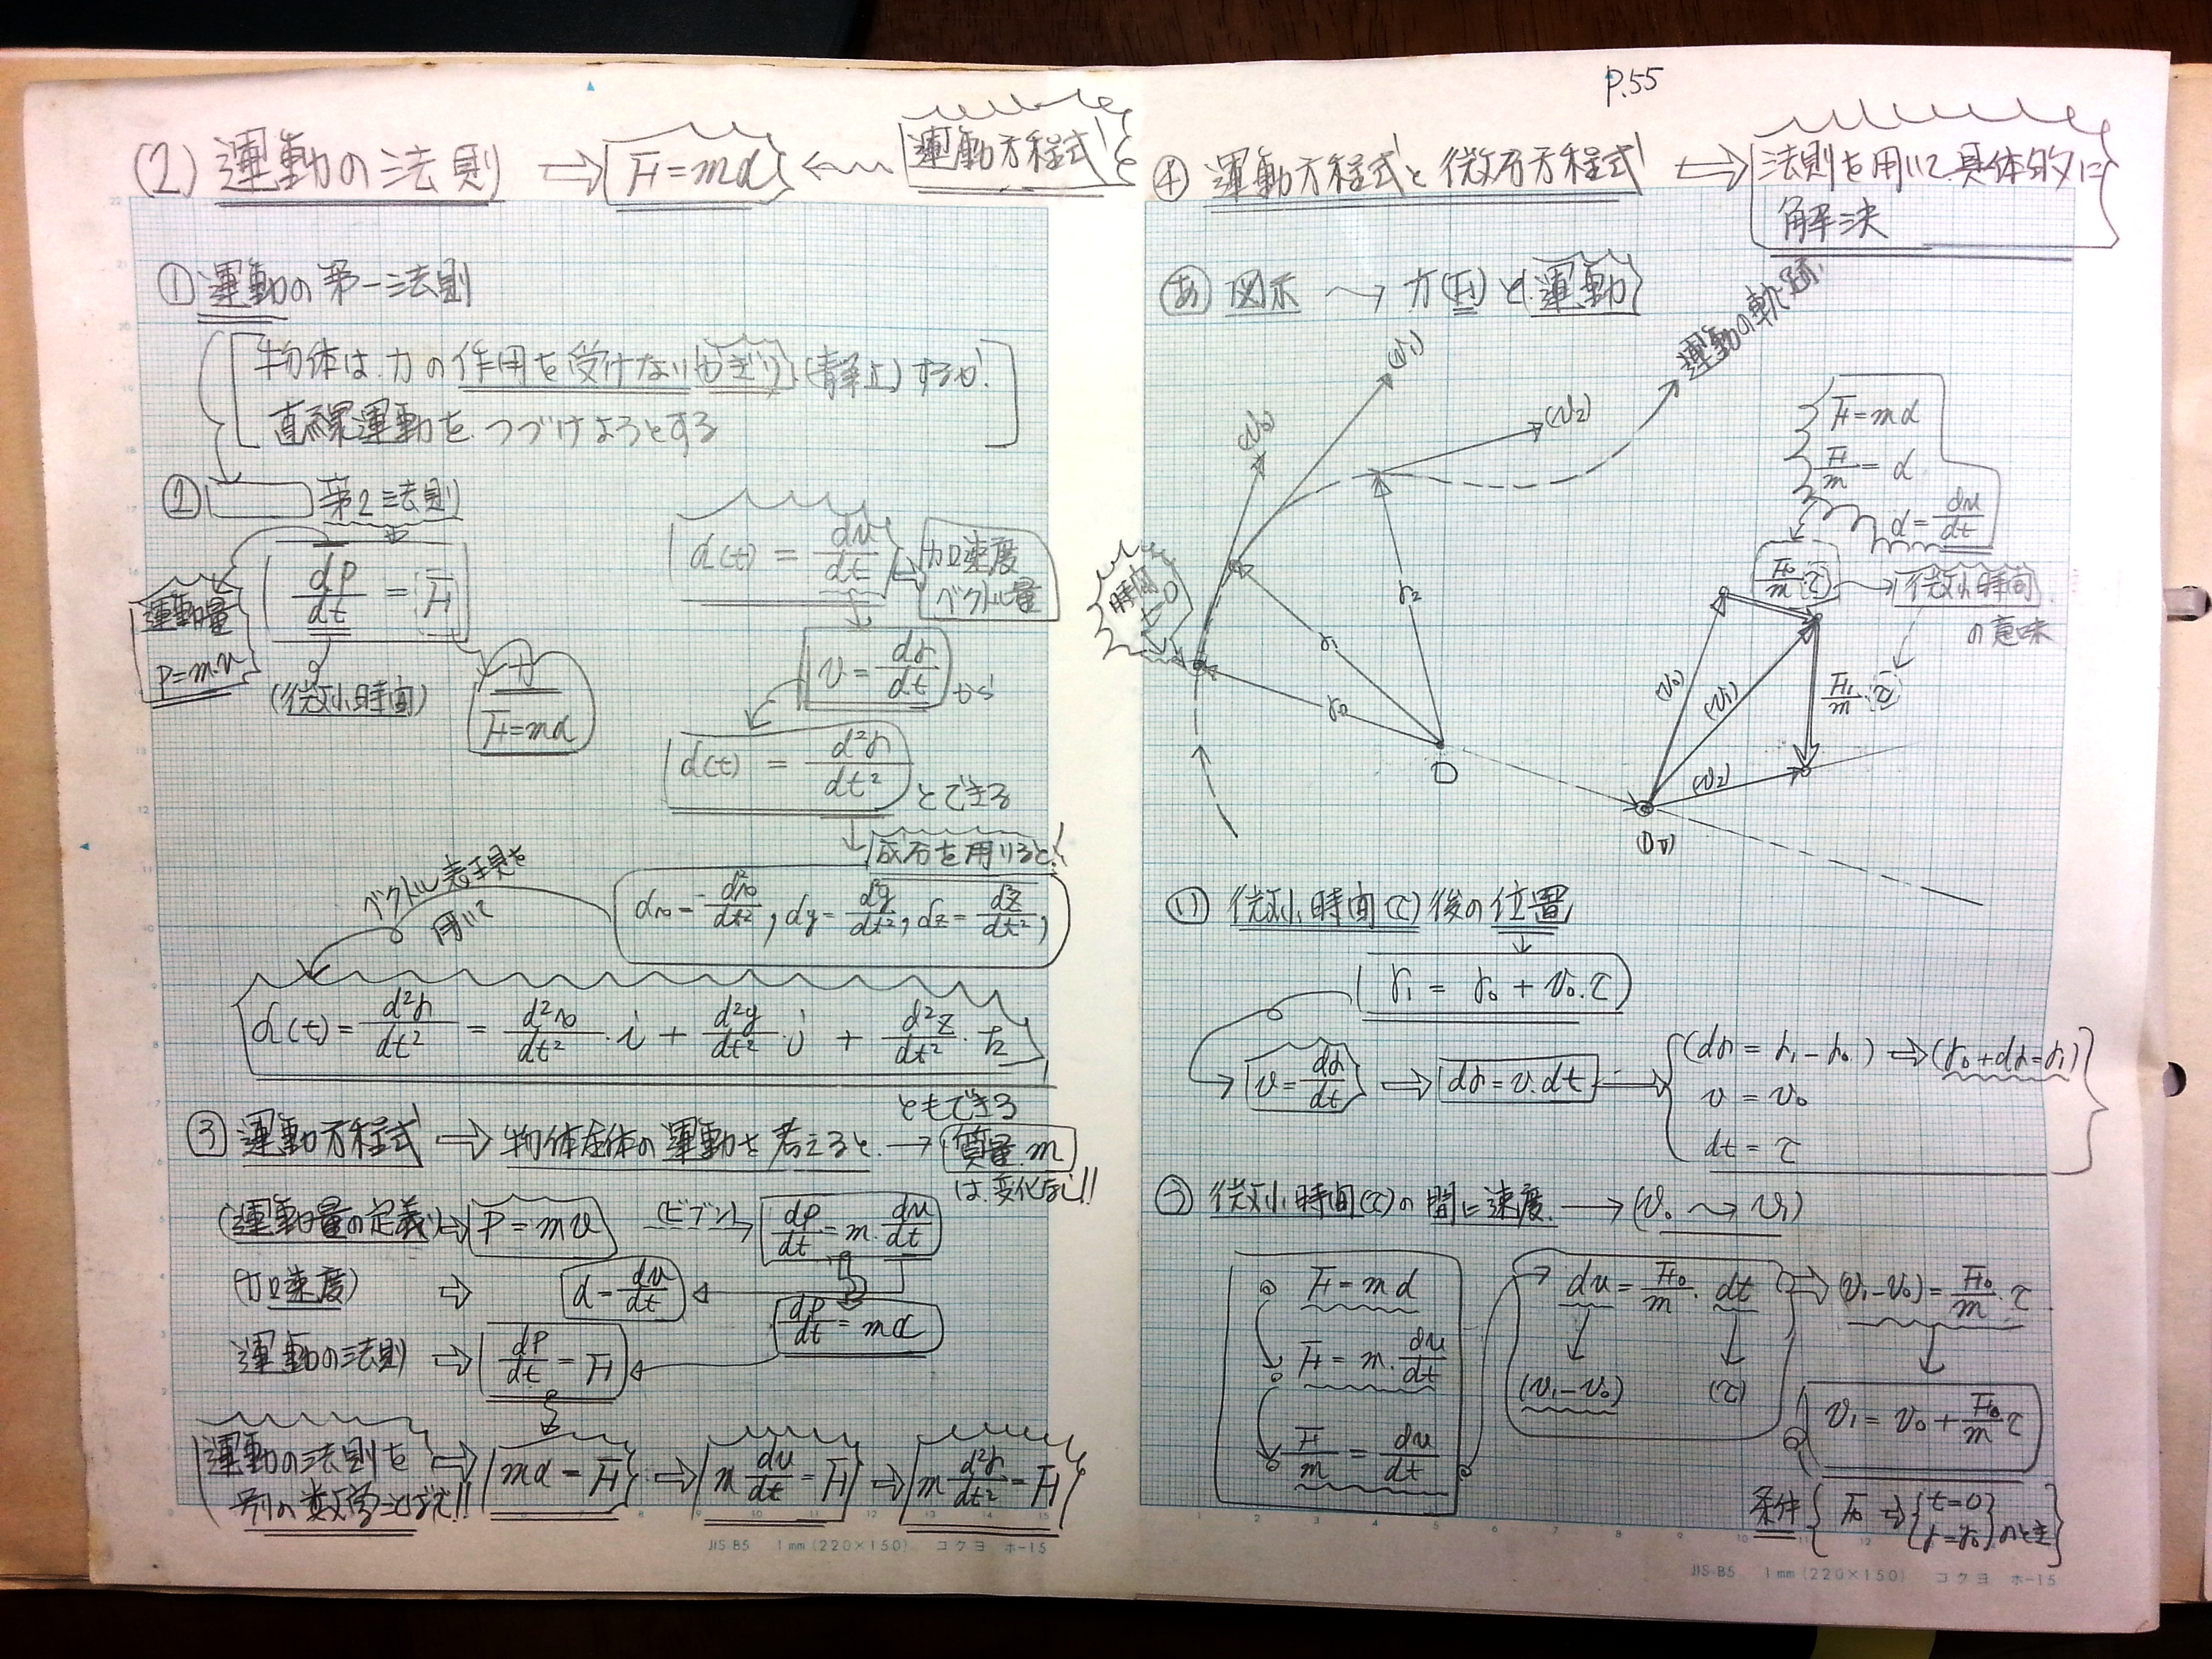 (2) 運動の法則 ⇒ F=mα ← 運動方程式
① 運動の第一法則
物体は.力の作用を受けないかぎり.(静止)するか.
直線運動を.つづけようとする
② 第2法則
dp/dt = F
運動量
p=m.v
(微小時間)
力
F=mα
α(t) = dv/dt
加速度
ベクトル量
v = dr/dt から
α(t) = d²r/dt² とできる
成分を用いると!
ベクトル表現を
用いて
α(t) = d²r/dt² = d²x/dt²・i + d²y/dt²・j + d²z/dt²・k
ともできる
③ 運動方程式 ⇒ 物体全体の運動を考えると → 質量.m
は.変化なし!!
(運動量の定義) ⇒ p=mv (ビブン) dp/dt = m.dv/dt
(加速度) ⇒ α=dv/dt
dp/dt = mα
運動の法則 ⇒ dp/dt = F
運動の法則を
別の数学ことばで!! ⇒ mα = F ⇒ m dv/dt = F ⇒ m d²r/dt² = F
JIS B5 1mm(220×150) コクヨ ホ-15
p.55
④ 運動方程式と微分方程式 ⇒ 法則を用いて.具体的に
解決
あ 図示 → 力(F)と運動
運動の軌跡
(v₀)
(v₁)
(v₂)
時間
t=0
r₀
r₁
r₂
O
F=mα
F/m = α
α = dv/dt
F₀/m・(τ) → (微小時間)
の意味
(v₀)
(v₁)
(v₂)
F₁/m・(τ)
(い) 微小時間(τ)後の位置
r₁ = r₀ + v₀.τ
v = dr/dt ⇒ dr = v.dt ⇒ (dr = r₁-r₀) ⇒ (r₀+dr=r₁)
v = v₀
dt = τ
う 微小時間(τ)の間に速度. → (v₀ → v₁)
F = mα
F = m.dv/dt
F/m = dv/dt
dv = F₀/m・dt ⇒ (v₁-v₀) = F₀/m・τ
(v₁-v₀) (τ)
v₁ = v₀ + F₀/m τ
条件 { F₀ ⇒ {t=0 r=r₀} のとき }
JIS B5 1mm(220×150) コクヨ ホ-15